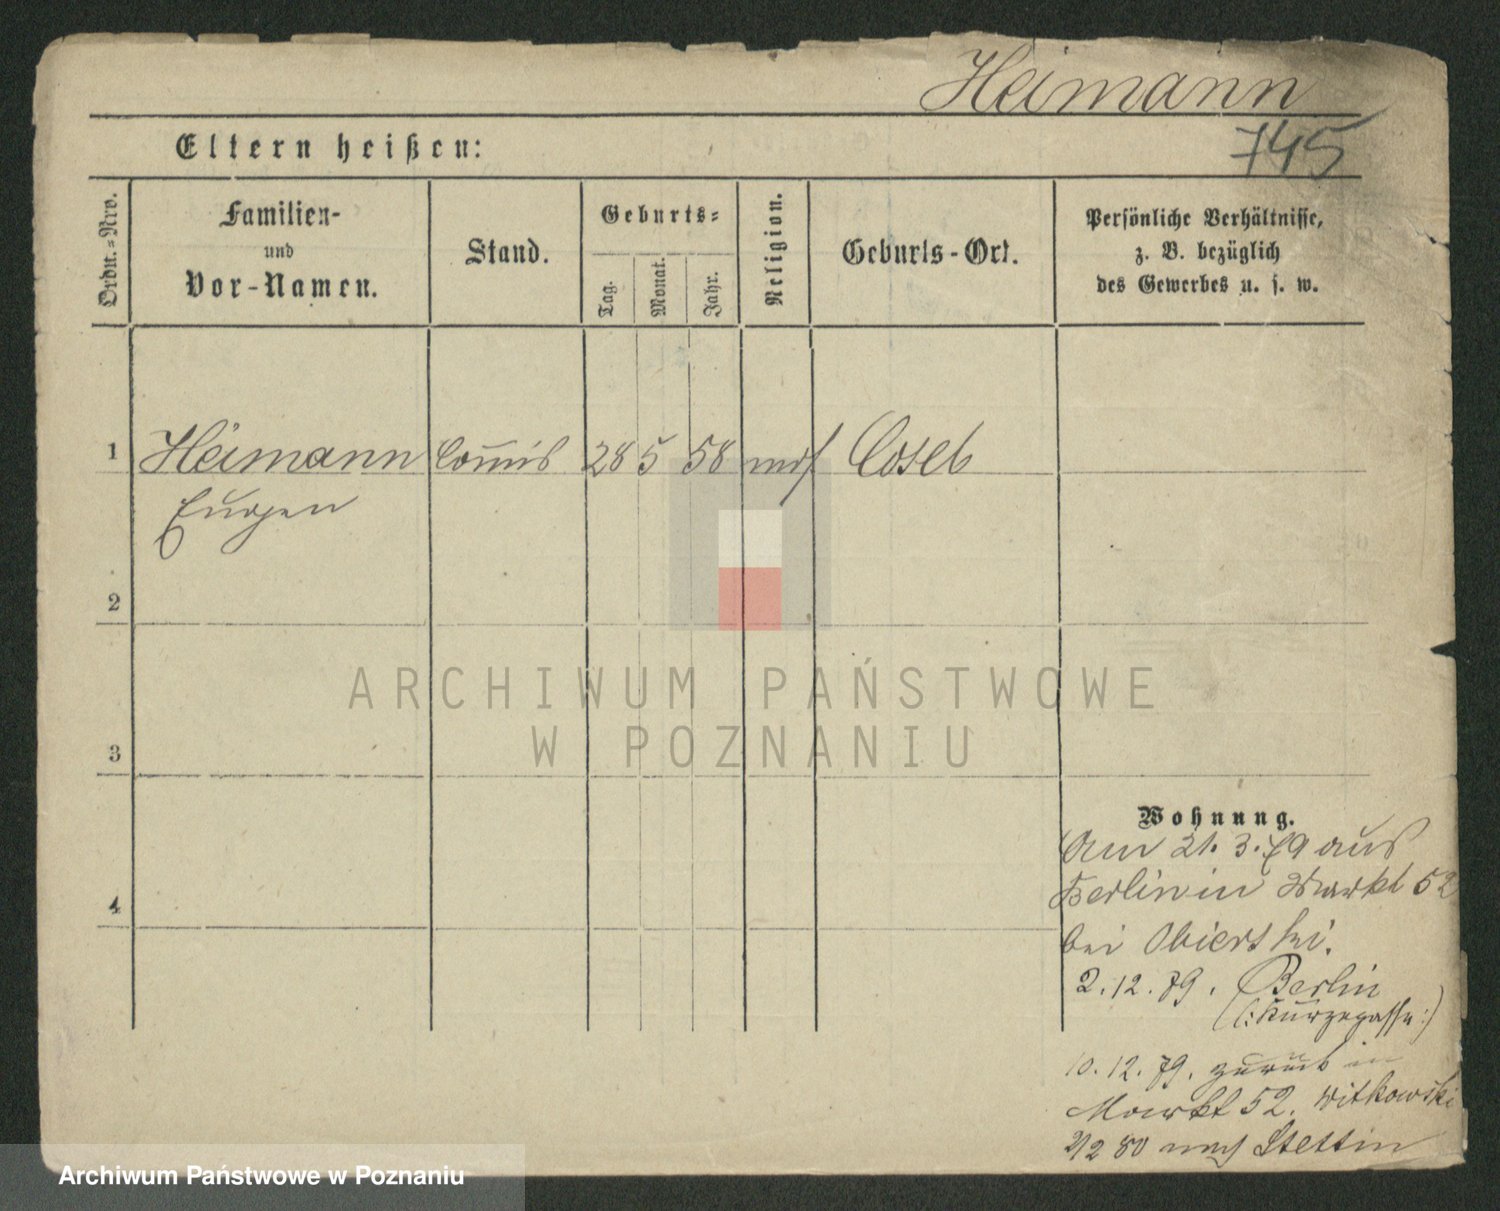 Heimann
745
Eltern heißen:
Ordn.=Nro.
Familien-
und
Vor-Namen.
Stand.
Geburts=
Tag.
Monat.
Jahr.
Religion.
Geburts-Ort.
Persönliche Verhältnisse,
z. B. bezüglich
des Gewerbes u. s. w.
1 Heimann Commis 28 5 58 Cosel
Eugen
2
3
4
Wohnung.
Am 21. 3. 79 aus
Berlin in Markt 52
bei Obierski.
2. 12. 79. Berlin
(: Kurzegasse :)
10. 12. 79. zurück in
Markt 52. Witkowski
2/2 80 nach Stettin
ARCHIWUM PAŃSTWOWE
W POZNANIU
Archiwum Państwowe w Poznaniu